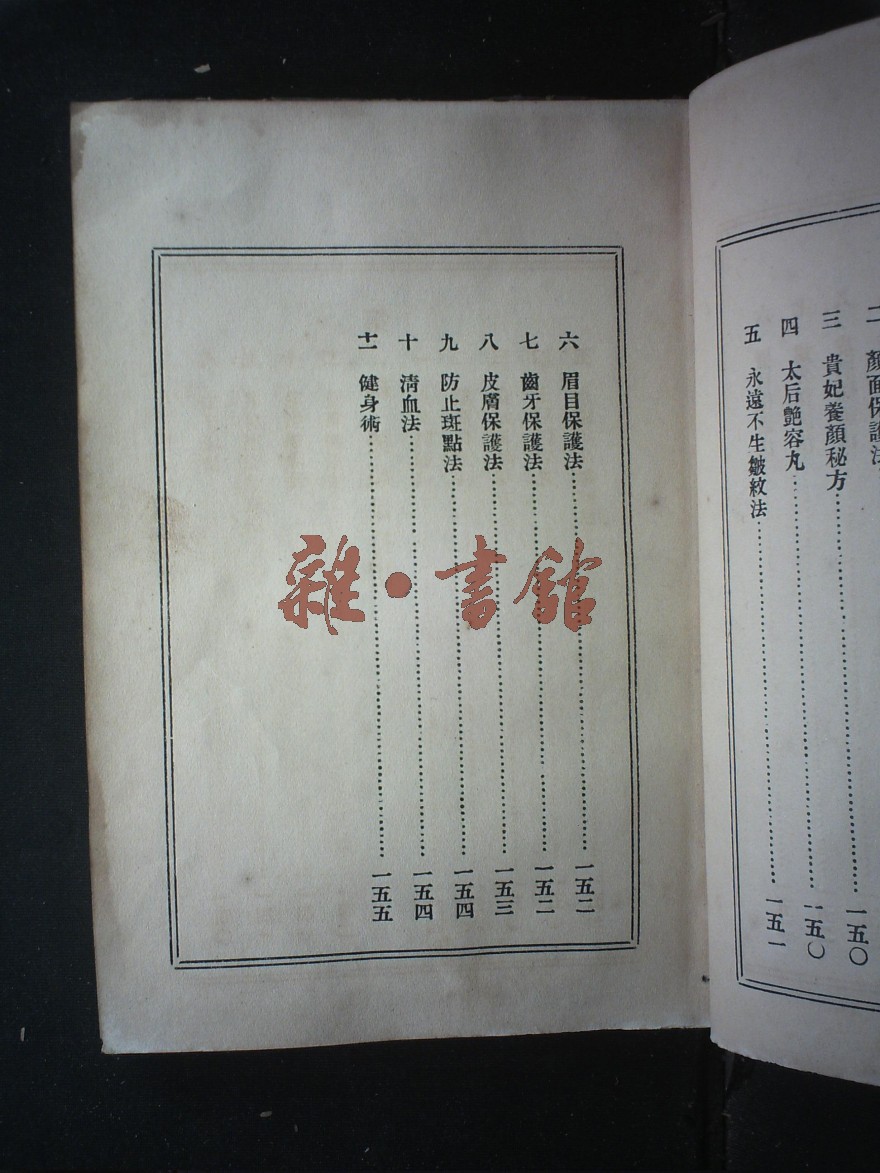 二 顏面保護法
三 貴妃養顏秘方……一五〇
四 太后艷容丸……一五〇
五 永遠不生皺紋法……一五一
六 眉目保護法……一五二
七 齒牙保護法……一五二
八 皮膚保護法……一五三
九 防止斑點法……一五四
十 清血法……一五四
十一 健身術……一五五
雜·書館